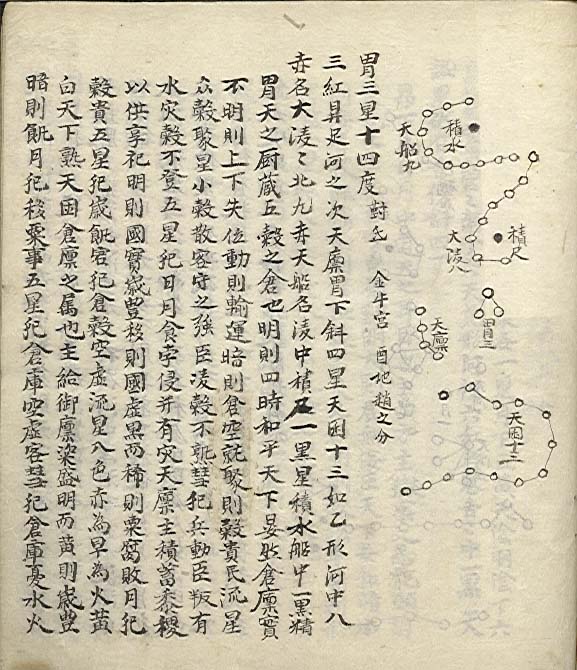 積水
天船九
積尸
大陵八
胃三
天廩
天囷十三
胃三星十四度 對氐 金牛宮 酉地趙之分
三紅鼎足河之次天廩胃下斜四星天囷十三如乙形河中八
赤名大陵〻北九赤天船名陵中積尸一黑星積水船中一黑精
胃天之厨蔵五穀之倉也明則四時和平天下晏然倉廩實
不明則上下失位動則輸運暗則倉空就聚則穀貴民流星
众穀聚星小穀散客守之強臣凌穀不熟彗犯兵動臣叛有
水灾穀不登五星犯日月食孛侵并有灾天廩主積蓄黍稷
以供享祀明則國寶歲豊移則國虛黑而稀則粟腐敗月犯
穀貴五星犯歲飢客犯倉穀空虛流星入色赤為旱為火黃
白天下熟天囷倉廩之属也主給御廩粢盛明而黃則歲豊
暗則飢月犯移粟事五星犯倉庫空虛客彗犯倉庫憂水火